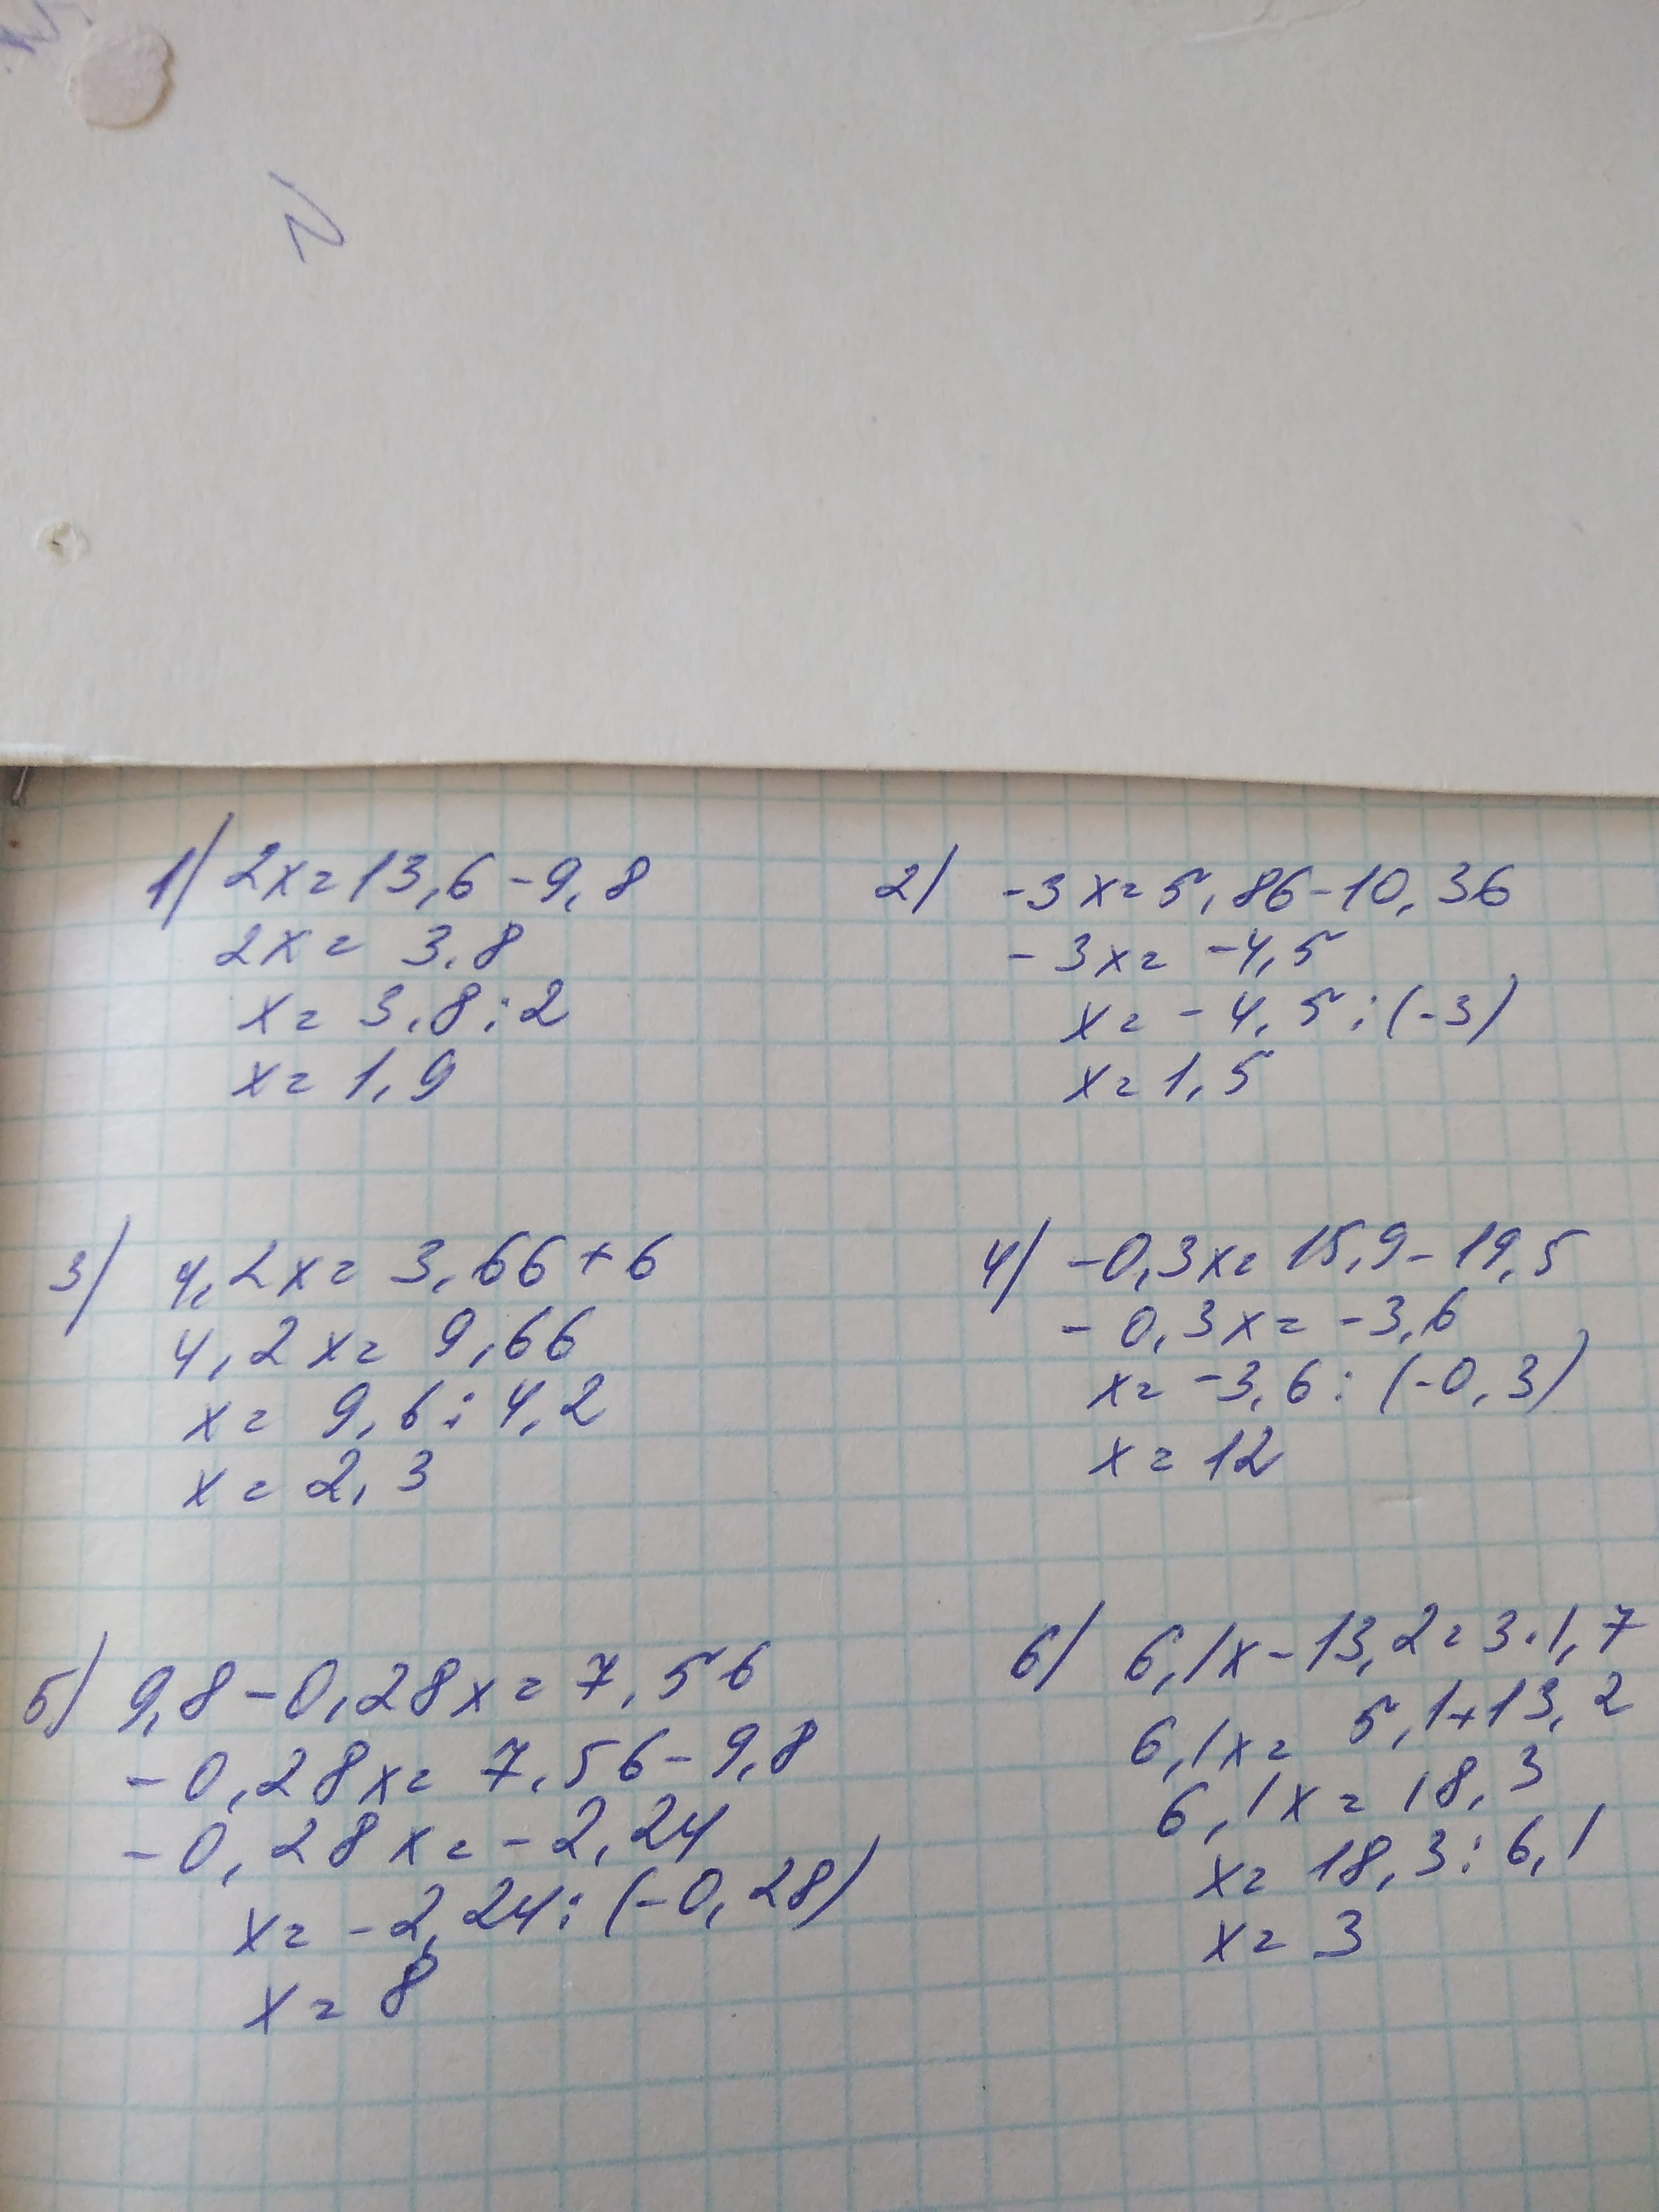 1) 2x=13,6-9,8
2x= 3,8
x= 3,8:2
x= 1,9
2) -3x=5,86-10,36
-3x= -4,5
x= -4,5:(-3)
x=1,5
3) 4,2x= 3,66+6
4,2x= 9,66
x= 9,6:4,2
x= 2,3
4) -0,3x= 15,9-19,5
-0,3x= -3,6
x= -3,6:(-0,3)
x= 12
5) 9,8-0,28x= 7,56
-0,28x= 7,56-9,8
-0,28x= -2,24
x= -2,24:(-0,28)
x= 8
6) 6,1x-13,2=3·1,7
6,1x= 5,1+13,2
6,1x= 18,3
x= 18,3:6,1
x= 3